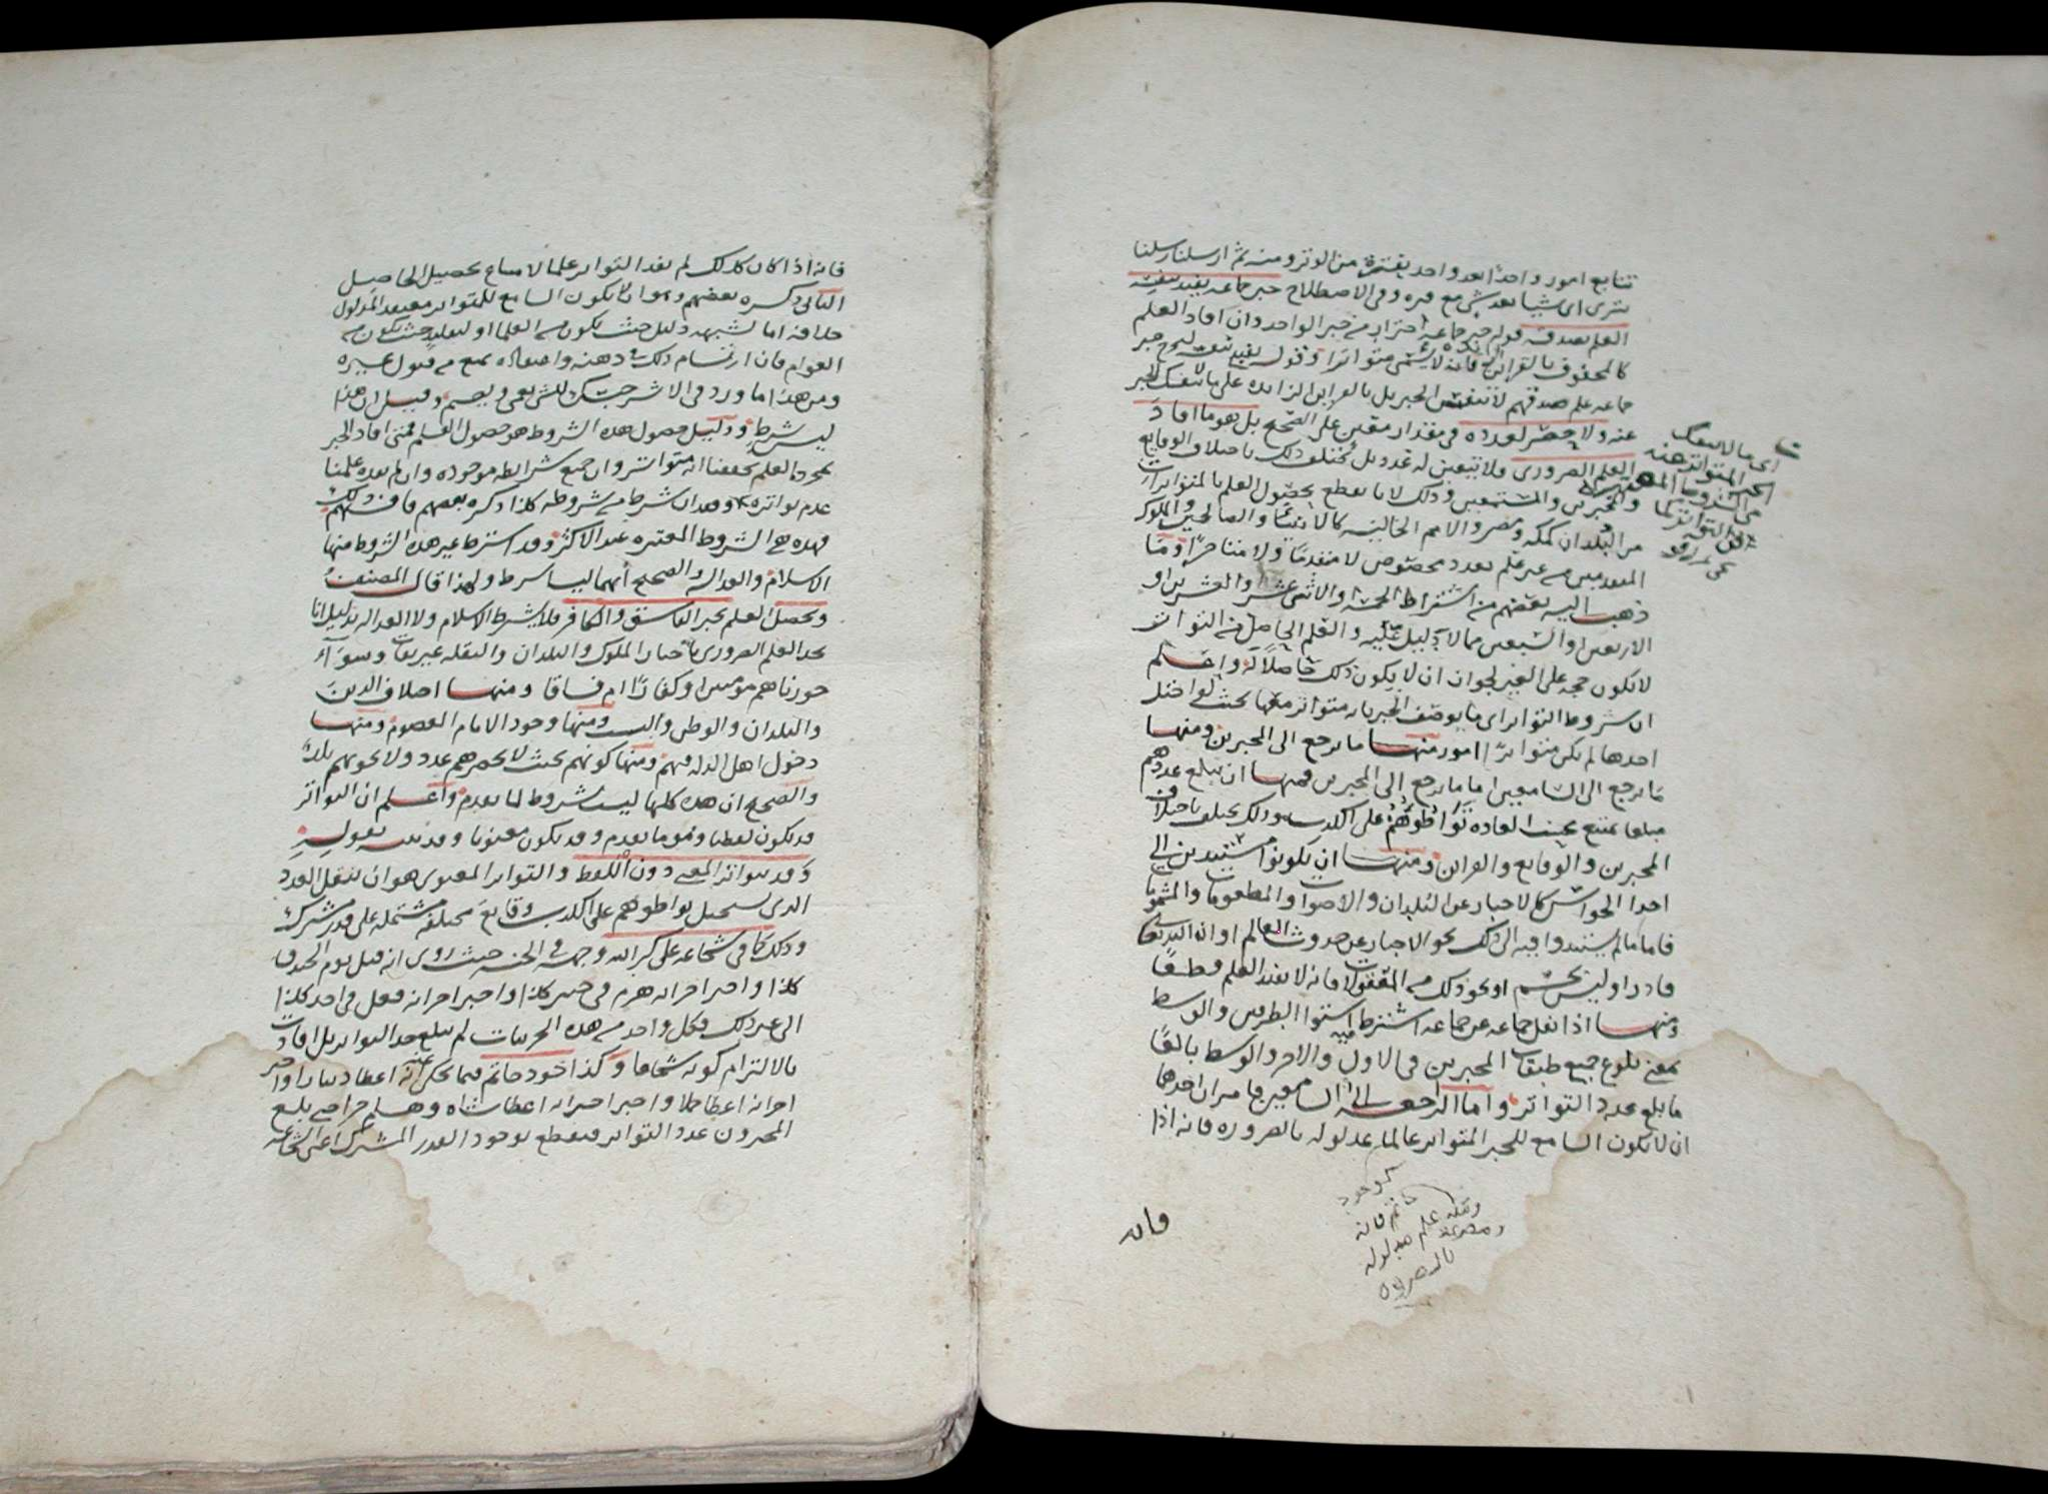 تتابع امور واحدا بعد واحد بفترة من الوتر ومنه ثم ارسلنا رسلنا
تترى اى شيا بعد شى مع فتره وفى الاصطلاح خبر جماعه يفيد بنفسه
العلم بصدقه قوله خبر جماعه احتراز من خبر الواحد وان افاد العلم
كالمحفوف بالقرائن فانه لا يسمى متواترا وقوله يفيد بنفسه ليخرج خبر
جماعه علم صدقهم لا بنفس الخبر بل بالقراين الزايده على ما لا ينفك الخبر
عنه ولا حصر لعدده فى مقدار معين على الصحيح بل هو ما افاد
العلم الضرورى ولا يتعين له عدد بل يختلف ذلك باختلاف الوقايع
والمخبرين والمستمعين وذلك لانا نقطع بحصول العلم بالمتواترات
من البلدان كمكه ومصر والامم الخاليه كالانبيا والصالحين والملوك
المتقدمين من غير علم بعدد مخصوص لا متقدما ولا متاخرا وما
ذهب اليه بعضهم من اشتراط الخمسه والاثنى عشر والعشرين او
الاربعين او السبعين مما لا دليل عليه والعلم الحاصل من التواتر
لا يكون حجه على الغير لجواز ان لا يكون ذلك حاصلا له واعلم
ان شروط التواتر اى ما يوصف الخبر بانه متواتر معها بحيث لو اختل
احدها لم يكن متواترا امور منها ما يرجع الى المخبرين ومنها
ما يرجع الى السامعين اما ما يرجع الى المخبرين فمنها ان يبلغ عددهم
مبلغا يمتنع بحسب العاده تواطؤهم على الكذب وذلك يختلف باختلاف
المخبرين والوقايع والقراين ومنها ان يكونوا مستندين الى
احدا الحواس كالاخبار عن البلدان والاصوات والمطعومات والمشمومات
فاما ما لم يستندوا فيه الى ذلك نحو الاخبار عن حدوث العالم او ان الله تعالى
قادر او ليس بجسم او نحو ذلك من المعقولات فانه لا يفيد العلم قطعا
ومنها اذا نقل جماعه عن جماعه اشترط فيه استوا الطرفين والوسط
بمعنى بلوغ جميع طبقات المخبرين فى الاول والاخر والوسط بالغا
ما بلغ عدد التواتر واما الراجعه الى السامعين فامران احدهما
ان لا يكون السامع للخبر المتواتر عالما بمدلوله بالضروره فانه اذا
فانه
فانه اذا كان كذلك لم يفد التواتر علما لامتناع تحصيل الحاصل
الثانى ذكره بعضهم وهو ان لا يكون السامع للمتواتر معتقد المدلول
خلافه اما لشبهه دليل حيث يكون من العلما او لتقليد حيث يكون من
العوام فان ارتسام ذلك فى ذهنه واعتقاده يمنع من قبول غيره
ومن هذا ما ورد فى الاثر حبك للشى يعمى ويصم وقيل ان هذا
ليس شرط ودليل حصول هذه الشروط هو حصول العلم فمتى افاد الخبر
بمجرده العلم تحققنا انه متواتر وان جميع شرايطه موجوده وان لم يفده علمنا
عدم تواتره وفقدان شرط من شروطه كذا ذكره بعضهم فافهم ذلك
فهذه هى الشروط المعتبره عند الاكثر وقد اشترط غير هذه الشروط منها
الاسلام والعداله والصحيح انهما ليسا شرط ولهذا قال المصنف
ويحصل العلم بخبر الفاسق والكافر فلا يشترط الاسلام ولا العداله بدليل انا
نجد العلم الضرورى باخبار الملوك والبلدان والنقله غير ثقات وسوآء
جوزناهم مومنين او كفارا ام فساقا ومنها اختلاف الدين
والبلدان والوطن والنسب ومنها وجود الامام المعصوم ومنها
دخول اهل الذله فيهم ومنها كونهم بحيث لا يحصرهم عدد ولا يحويهم بلد
والصحيح ان هذه كلها ليست شروط لما تقدم واعلم ان التواتر
قد يكون لفظيا وهو ما تقدم وقد يكون معنويا وقد بينه بقوله
وقد يتواتر المعنى دون اللفظ والتواتر المعنوى هو ان ينقل العدد
الذى يستحيل تواطوهم على الكذب وقايع مختلفه مشتمله على قدر مشترك
وذلك كما فى شجاعه على كرم الله وجهه فى الجنه حيث روى انه قتل يوم الخندق
كذا واخبر اخر انه هزم فى خيبر كذا واخبر اخر انه فعل فى احد كذا
الى غير ذلك فكل واحد من هذه الجزييات لم يبلغ حد التواتر بل افادت
بالالتزام كونه شجاعا وكذا جود حاتم فيما يحكى عنه انه اعطا دينارا واخبر
اخر انه اعطا جملا واخبر اخر انه اعطا شاه وهلم جرا حتى بلغ
المخبرون عدد التواتر فيقطع بوجود القدر المشترك اعنى الشجاعه